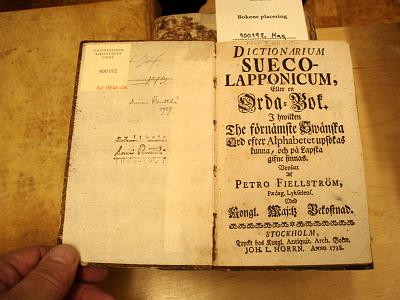 Bokens placering
900192 Mag
UNIVERSITETS-
BIBLIOTEKET
900192
1909
DICTIONARIUM
SUECO-
LAPPONICUM,
Eller en
Orda-Bok.
I hwilken
The förnämste Swänska
Ord efter Alphabetet upsökas
kunna, och på Lapska
gifne finnas.
af
PETRO FIELLSTRÖM,
Pædag. Lykselens.
Med
Kongl. Maj:tz Bekostnad.
STOCKHOLM,
Tryckt hos Kongl. Antiquit. Arch. Boktr.
JOH. L. HORRN. ANNO 1738.